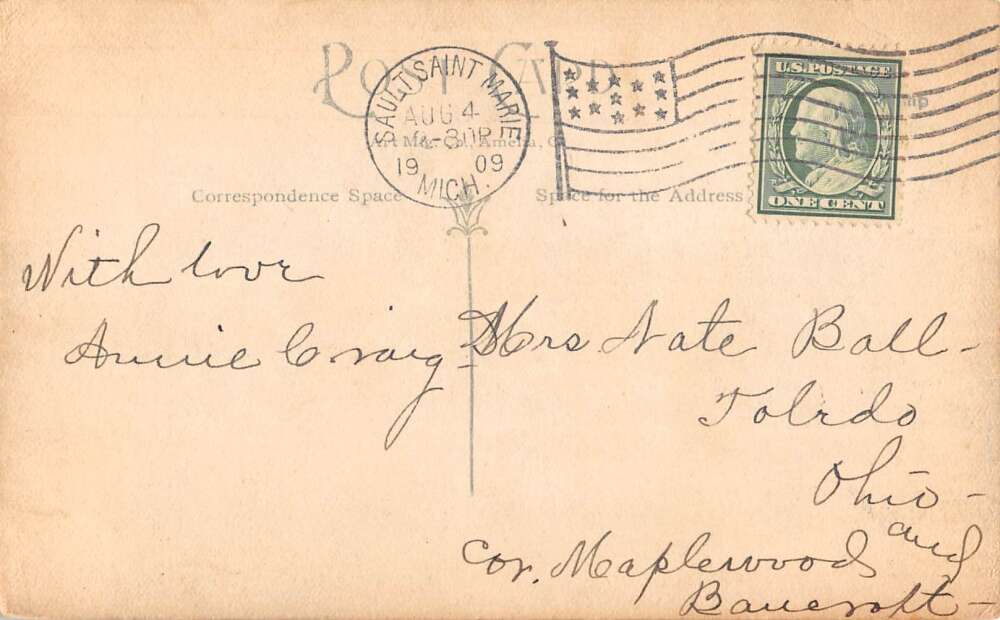 POST CARD
SAULT SAINT MARIE
AUG 4
-30P
19 09
MICH.
U.S. POSTAGE
ONE CENT
Art Mfg. Co., Amelia, O.
Correspondence Space
Space for the Address
With love
Annie Craig-
Mrs Nate Ball-
Toledo
Ohio-
Cor. Maplewood and
Bancroft-